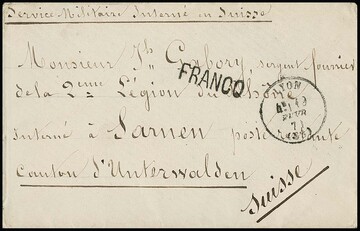 Service Militaire Interné en Suisse
Monsieur Jh Corbory, sergent fourrier
FRANCO
de la 2eme Légion du Rhône
LYON
FEVR
71
interné à Sarnen poste restante
Canton d'Unterwalden
Suisse